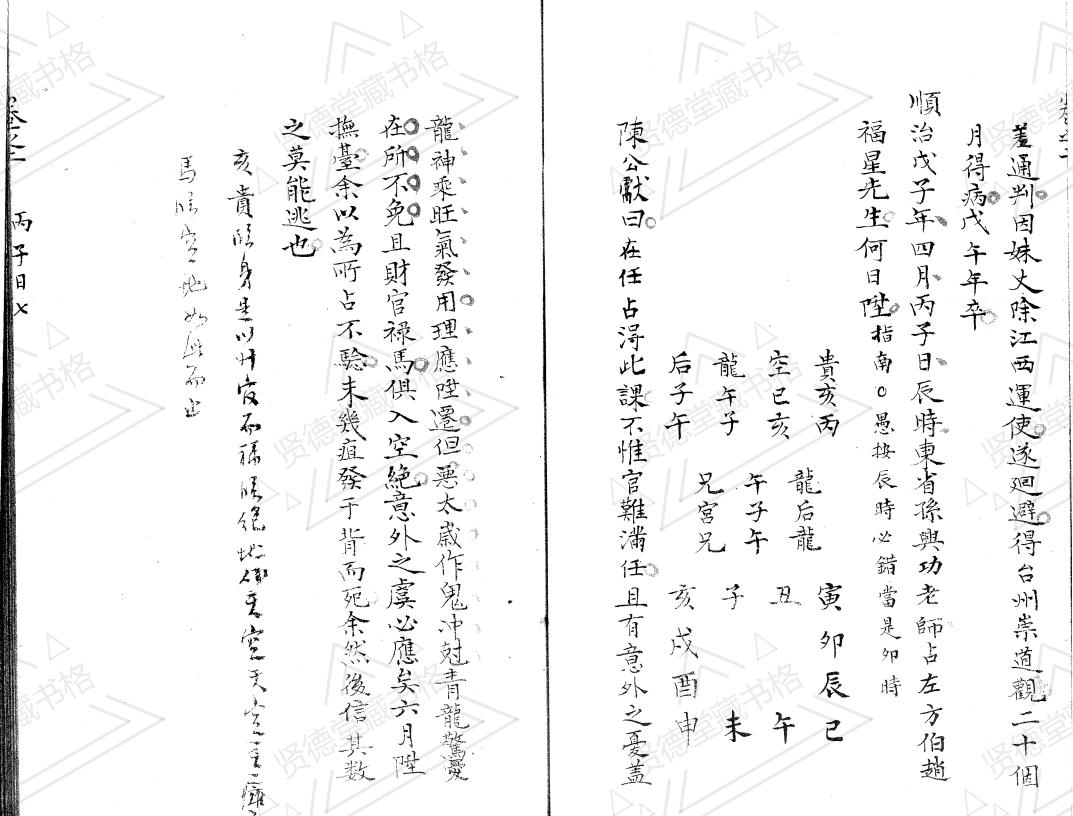 差通判因妹丈除江西運使遂迴避得台州崇道觀二十個
月得病戊午年卒
順治戊子年四月丙子日辰時東省孫興功老師占左方伯趙
福星先生何日陞指南○愚按辰時必錯當是卯時
貴亥丙
空巳亥
龍午子
后子午
龍后龍
午子午
兄官兄
寅卯辰巳
丑午
子未
亥戌酉申
陳公獻曰在任占得此課不惟官難滿任且有意外之憂蓋
龍神乘旺氣發用理應陞遷但惡太歲作鬼冲尅青龍驚憂
在所不免且財官祿馬俱入空絕意外之虞必應矣六月陞
撫臺余以為所占不驗未幾疽發于背而死余然後信其數
之莫能逃也
亥貴臨身是以
馬臨空地如此而止
丙子日七
贤德堂藏书格